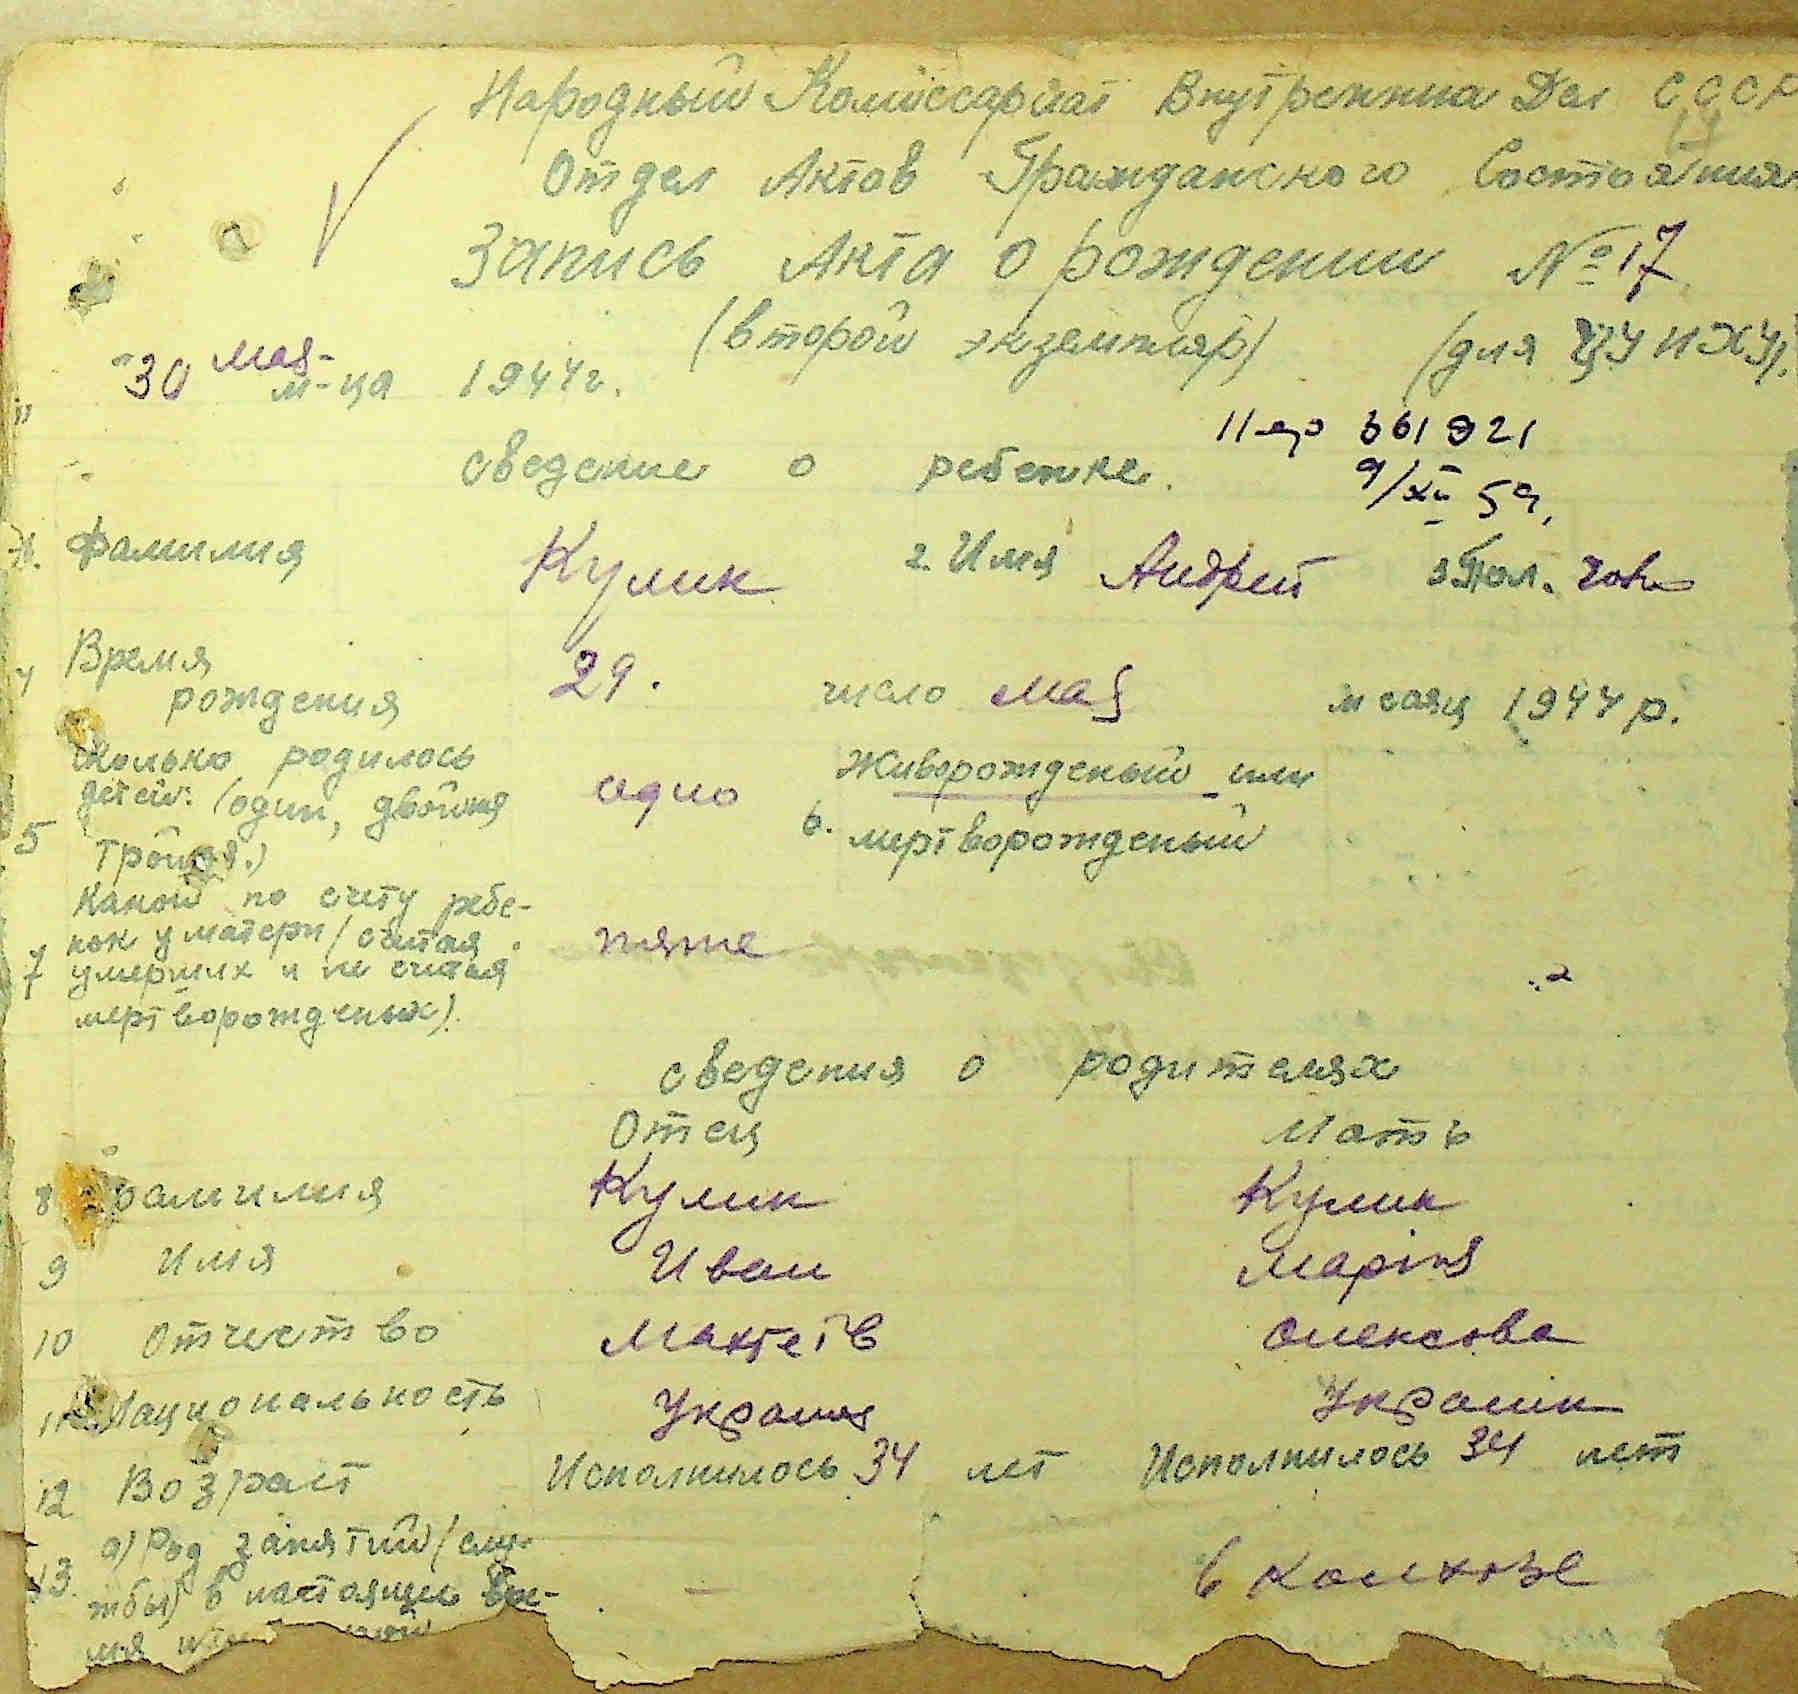 Народный Комиссариат Внутренних Дел СССР
Отдел Актов Гражданского Состояния
Запись Акта о рождении №17
(второй экземпляр) (для ЦУНХУ)
"30 мая м-ца 1944г.
361921
9/XII 59.
сведение о ребенке.
Фамилия Кулик 2. Имя Андрей 3 Пол. чов
4 Время
рождения 29. число мая месяц 1944 р.
сколько родилось
детей: (один, двойня
5 тройня.) одно
6. Живорожденый или
мертворожденый
Какой по счету ребе-
нок у матери (считая
7 умерших и не считая
мертворожденых). пяте
сведения о родителях
Отец Мать
8 Фамилия Кулик Кулик
9 Имя Иван Марія
10 Отчество Мактеів Олексова
11 Национальность Украин Украин
12 Возраст Исполнилось 34 лет Исполнилось 34 лет
13. а) Род занятий (слу-
жбы) в настоящее вре- – в колхозе
мя